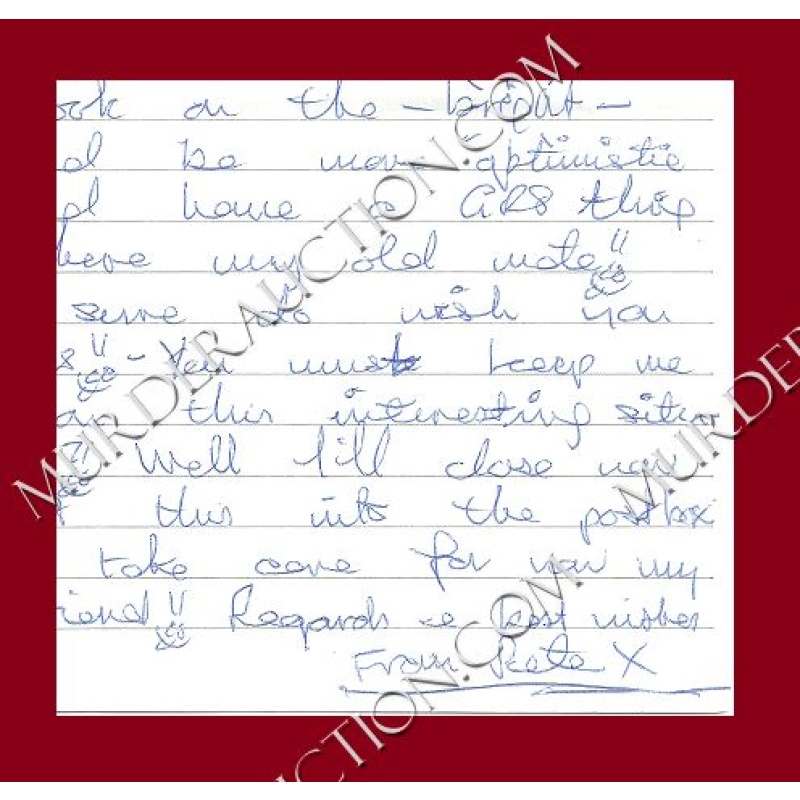 ook on the - bright -
d be more optimistic
d home
here my old mate!!
serve to wish you
s!! - You must keep me
on this interesting situa
?! Well I'll close now
this into the postbox
take care for now my
riend!! Regards & best wishes
From Pete X
MURDERAUCTION.COM
MURDER
UCTION.COM